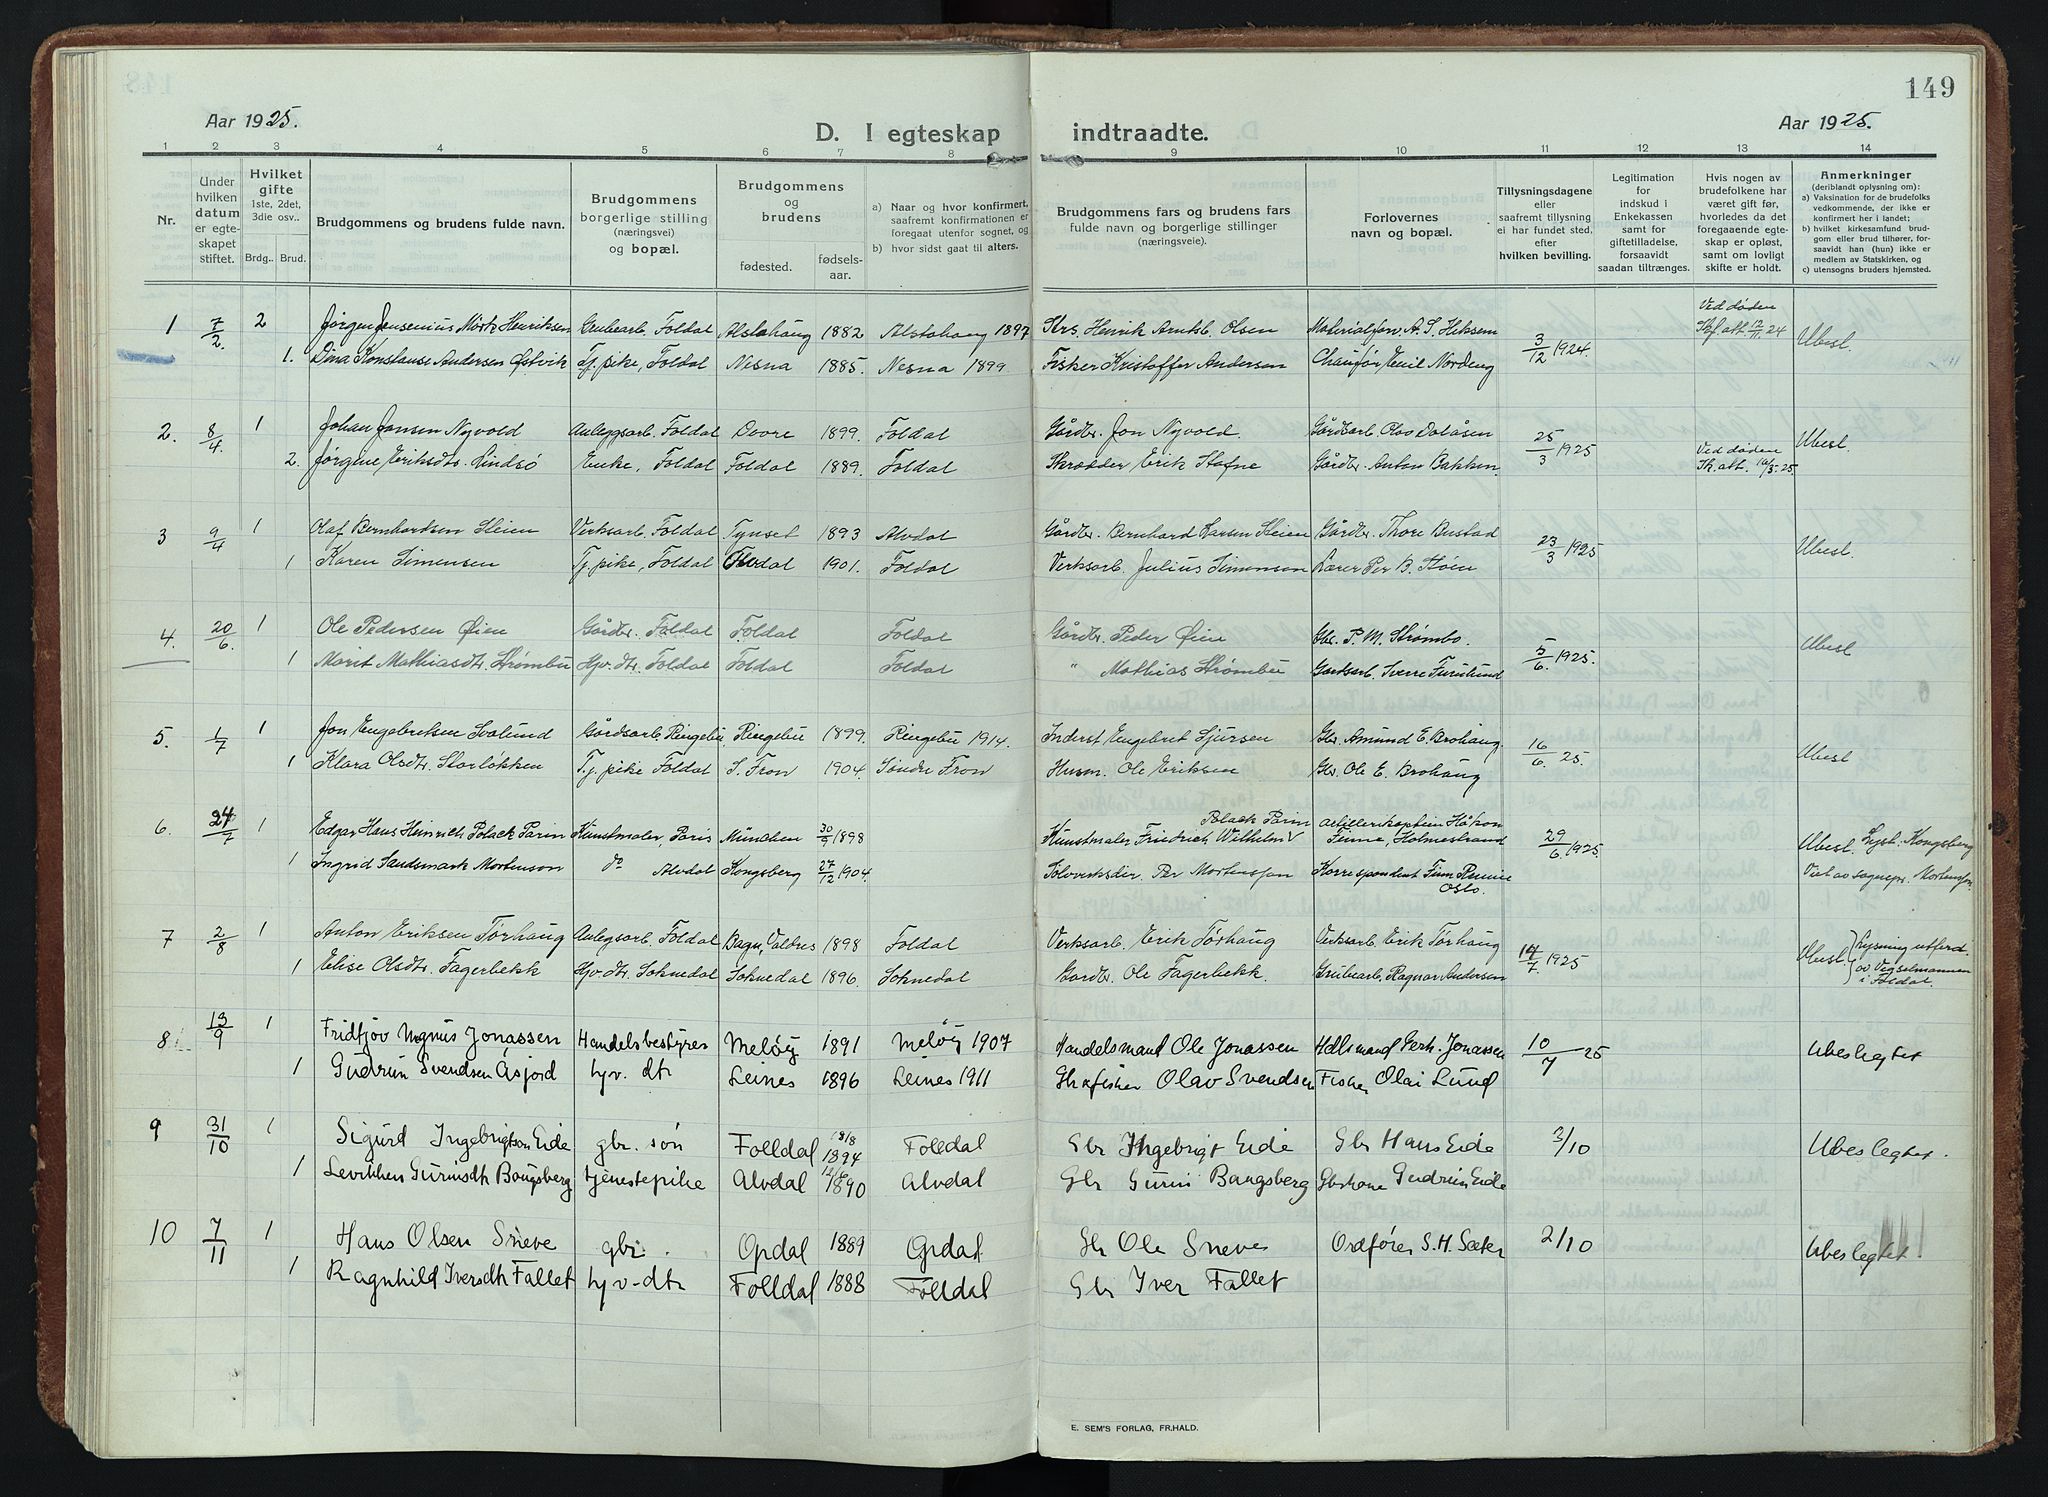 149
Aar 1925.
D. I egteskap indtraadte.
Aar 1925.
1 2 3 4 5 6 7 8 9 10 11 12 13 14
Nr.
Under hvilken datum er egteskapet stiftet.
Hvilket gifte 1ste, 2det, 3die osv..
Brdg.. Brud.
Brudgommens og brudens fulde navn.
Brudgommens borgerlige stilling (næringsvei) og bopæl.
Brudgommens og brudens
fødested.
fødselsaar.
a) Naar og hvor konfirmert, saafremt konfirmationen er foregaat utenfor sognet, og
b) hvor sidst gaat til alters.
Brudgommens fars og brudens fars fulde navn og borgerlige stillinger (næringsveie).
Forlovernes navn og bopæl.
Tillysningsdagene eller saafremt tillysning ei har fundet sted, efter hvilken bevilling.
Legitimation for indskud i Enkekassen samt for giftetilladelse, forsaavidt saadan tiltrænges.
Hvis nogen av brudefolkene har været gift før, hvorledes da det foregaaende egteskap er opløst, samt om lovligt skifte er holdt.
Anmerkninger (deriblandt oplysning om):
a) Vaksination for de brudefolks vedkommende, der ikke er konfirmert her i landet;
b) hvilket kirkesamfund brudgom eller brud tilhører, forsaavidt han (hun) ikke er medlem av Statskirken, og
c) utensogns bruders hjemsted.
1 7/2. 2 Jørgen Jensenius Mörk Henriksen Grubearb. Foldal Alstahaug 1882 Alstahaug 1897 Henrik Arntsb. Olsen Materialforv. A. S. 3/12 1924 Ved døden 24 Ubesl.
1. Dina Konstanse Andersen Østvik Tj. pike, Foldal Nesna 1885. Nesna 1899. Fisker Kristoffer Andersen Chauför Emil Nordeng
2. 8/4 1 Johan Jonsen Nyvold Anleggsarb. Foldal Dovre 1899. Foldal Gårdbr. Jon Nyvold. Gårdsarb. Olav Dalåsen 25/3 1925 Ved døden Ubesl.
2. Jørgine Eriksdtr. Lindsö Enke, Foldal Foldal 1889. Foldal Skrædder Erik Stafne Gårdbr. Anton Bakken. Sk. att. 16/3-25.
3 9/4 1 Olaf Bernhardsen Steien Verksarb. Foldal Tynset 1893 Alvdal Gårdbr. Bernhard Larsen Steien Gårdbr. Thore Bustad 23/3 1925 Ubesl.
1 Karen Simensen Tj. pike, Foldal 1901. Foldal Verksarb. Julius Simensen Lærer Per B. Støen
4. 20/6. 1 Ole Pedersen Øien Gårdbr. Foldal Foldal Foldal Gårdbr. Peder Øien Gbr. P. M. Strømbo. 5/6. 1925. Ubesl
1 Marit Mathiasdtr. Strømbu Hjv. dtr. Foldal Foldal Foldal " Mathias Strømbu Gårdsarb. Sverre Furuhund
5. 1/7 1 Jon Engebretsen Svalund Gårdsarb. Ringebu, Ringebu 1899. Ringebu 1914. Inderst Engebret Sjursen Gbr. Amund E. Brohaug 16/6. 25. Ubesl
1 Klara Olsdtr. Storløkken Tj. pike Foldal S. Fron 1904. Søndre Fron Husm. Ole Eriksen Gbr. Ole E. Brohaug
6. 24/7 1 Edgar Hans Heinrich Polack Parin Kunstmaler, Paris München 30/9 1898 Kunstmaler Friedrich Wilhelm Polack Parin artillerikaptein Håkon Finne, Holmestrand 29/6 1925. Ubesl. Lyst. Kongsberg
1 Ingrid Sandsmark Mortenson do Alvdal Kongsberg 27/12 1904. Sølvverksdir. Per Mortensson Korrespondent Finn Oslo. Viet av sognepr. Mortensson
7 2/8 1 Anton Eriksen Tørhaug Anlegsarb. Foldal Bagn, Valdres 1898 Foldal Verksarb. Erik Tørhaug Verksarb. Erik Tørhaug 14/7. 1925 Ubesl. Lysning utferd. av Vigselmannen i Foldal.
1 Elise Olsdtr. Fagerbekk Hjv. dtr. Soknedal Soknedal 1896. Soknedal Gårdbr. Ole Fagerbekk. Grubearb. Ragnar Andersen
8 13/9 1 Fridtjov Magnus Jonassen Handelsbestyrer Meløy 1891 Meløy 1907 Handelsmand Ole Jonassen Hdlsmand Jonassen 10/7 25 Ubeslegtet
1 Gudrun Svendsen Åsjord hjv. dtr Leines 1896 Leines 1911 Olav Svendsen Fisker Olai Lund
9 31/10 1 Sigurd Ingebrigtson Eide gbr. søn Folldal 18/8 1894 Folldal Gbr Ingebrigt Eide Gbr Hans Eide 2/10 Ubeslegtet.
1 Bangsberg tjenestepike Alvdal 12/6 1890 Alvdal Gbr Bangsberg Gbrkone Gudrun Eide
10 7/11 1 Hans Olsen Sneve gbr. Opdal 1889 Opdal Gbr Ole Sneve Ordfører S. H. Sæter 2/10 Ubeslegtet.
1 Ragnhild Iversdtr Fallet hjv-dtr Folldal 1888 Folldal Gbr Iver Fallet
E. SEM'S FORLAG, FR.HALD.